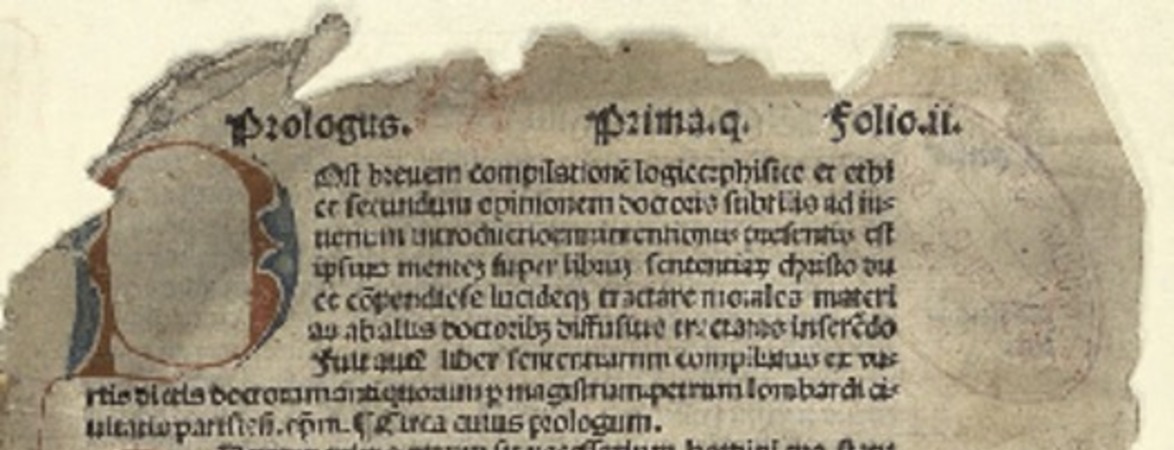 Prologus. Prima.q. Folio.ii.
Ost breuem compilationē logice:phisice et ethi
ce secundum opinionem doctoris subtilis ad iu-
uenum introductionem intentionis presentis est
ipsius mentez super libruz sententiaꝝ christo du
ce cōpendiose lucideqꝫ tractare morales materi
as ab aliis doctoribꝫ diffusiue tractatas inserēdo
Fuit autē liber sententiarum compilatus ex va-
riis dictis doctorum antiquorum p magistrum.petrum lombardi ci-
uitatis parisieñ.epm̄. ¶ Circa cuius prologum.